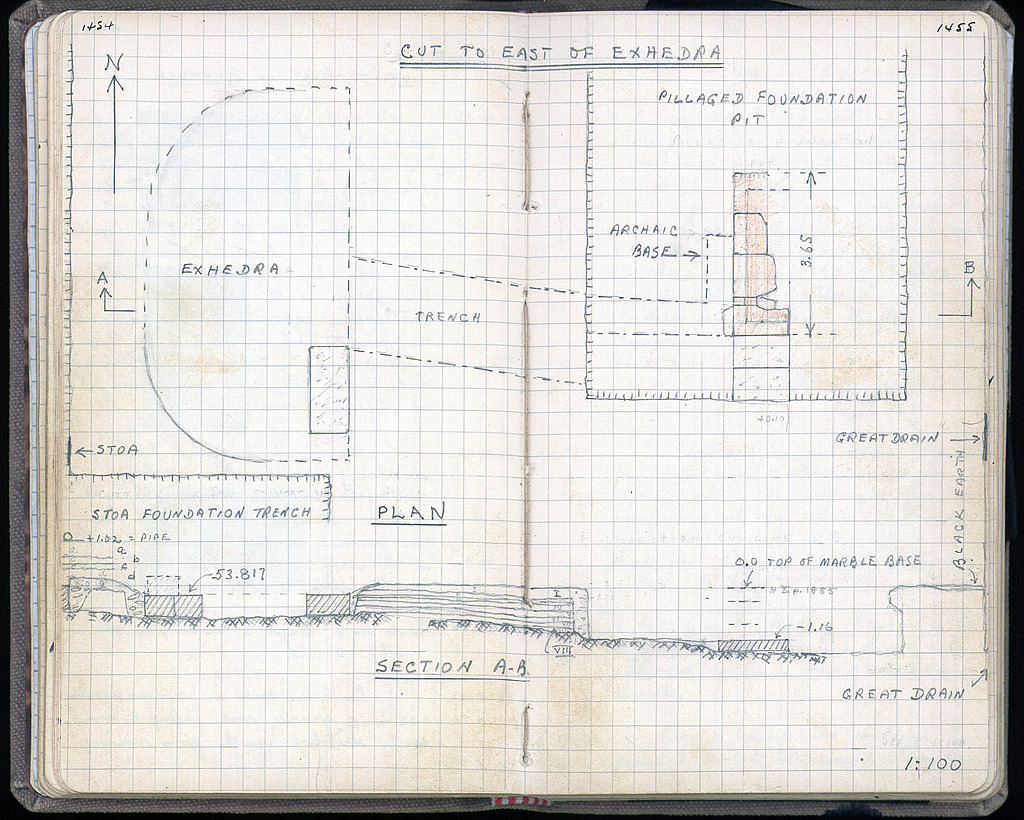 1454
1455
CUT TO EAST OF EXHEDRA
N
PILLAGED FOUNDATION
PIT
ARCHAIC
BASE
3.65
A
EXHEDRA
B
TRENCH
+0.10
GREAT DRAIN
STOA
BLACK EARTH
STOA FOUNDATION TRENCH
PLAN
+1.02 = PIPE
a
b
c
d
53.817
0.0 TOP OF MARBLE BASE
I
-1.16
VIII
SECTION A-B
GREAT DRAIN
1:100